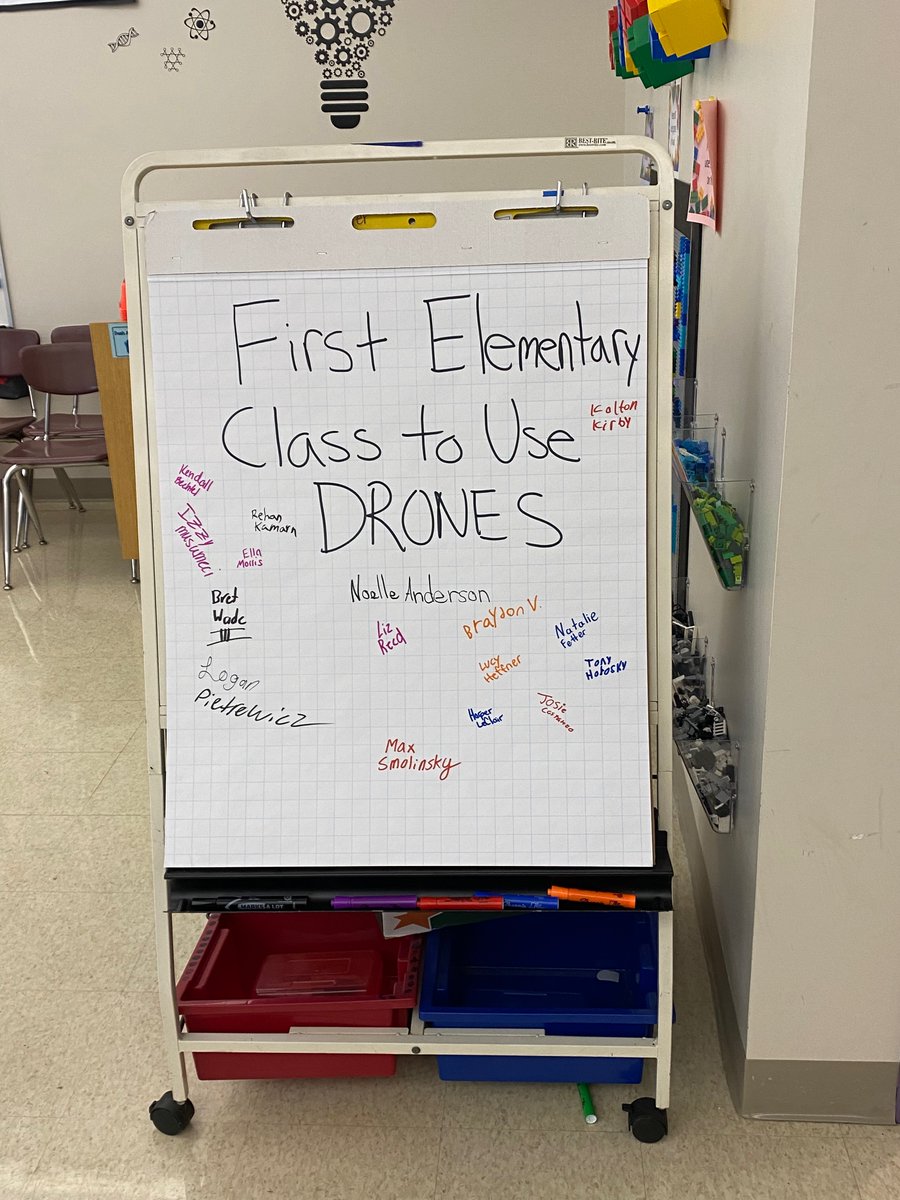 BEST-RITE
First Elementary
Class to Use
DRONES
Kolton
Kirby
Kendall
Bechtel
Izzy
musumeci
Rehan
Kamarn
Ella
Morris
Bret
Wade
III
Logan
Pietrewicz
Noelle Anderson
Liz
Reed
Braydon V.
Natalie
Fetter
Lucy
Heffner
Tony
Hotosky
Harper
LeClair
Josie
Max
Smolinsky
MARKS A LOT